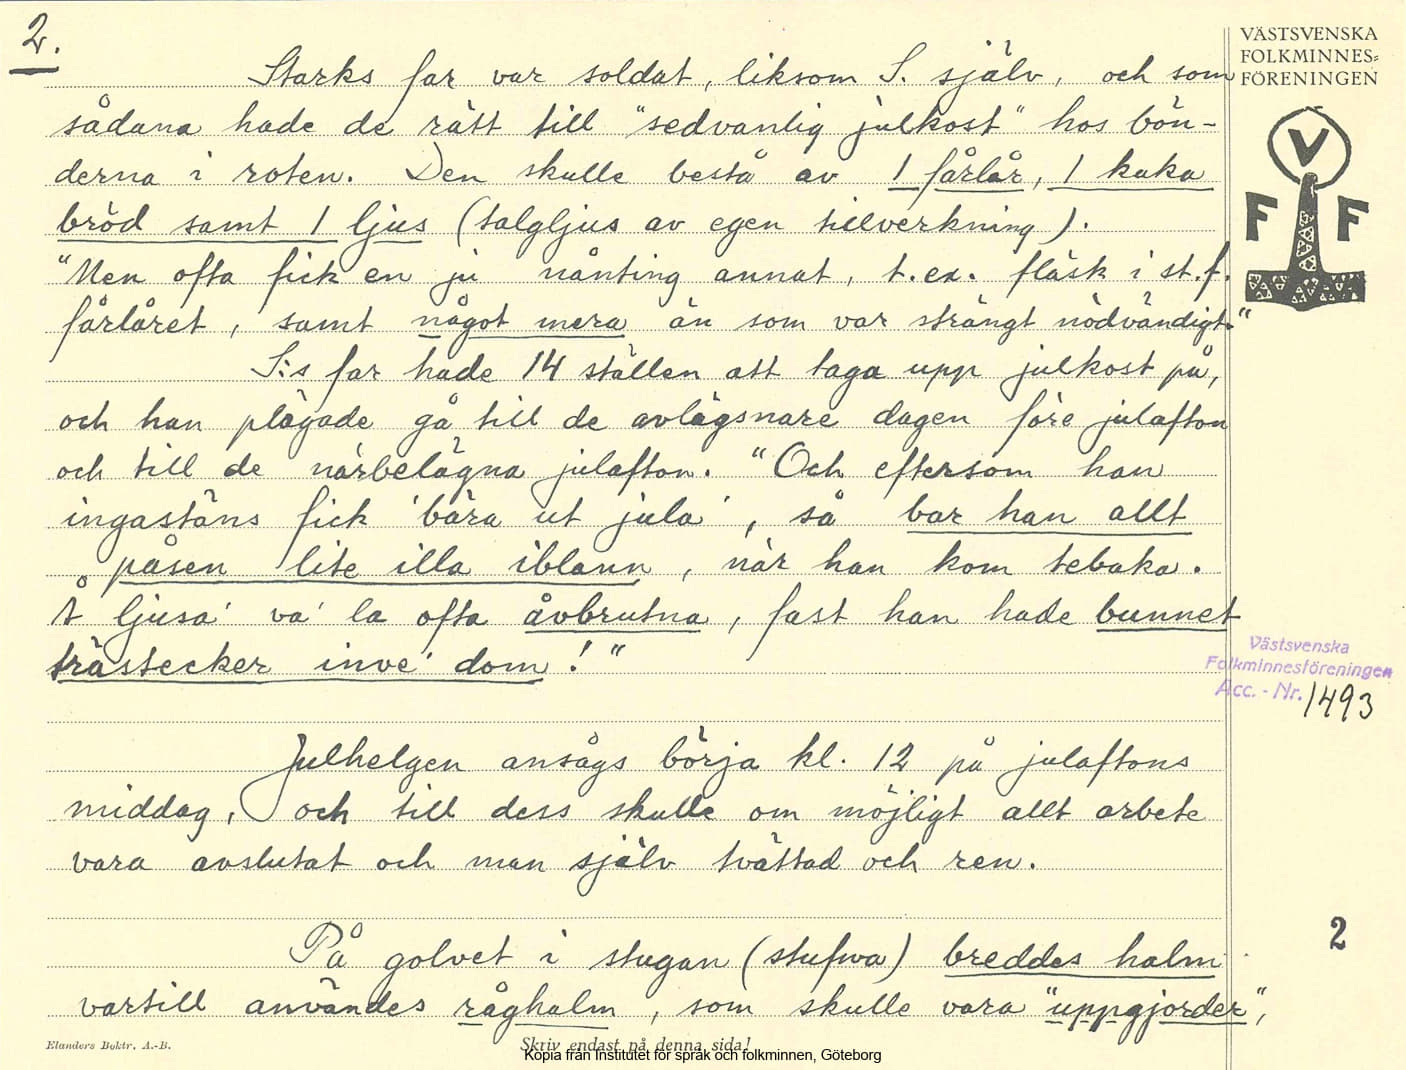 2.
Starks far var soldat, liksom S. själv, och som
sådana hade de rätt till "sedvanlig julkost" hos bön-
derna i roten. Den skulle bestå av 1 fårlår, 1 kaka
bröd samt 1 ljus (talgljus av egen tillverkning).
"Men ofta fick en ju nånting annat, t.ex. fläsk i st.f.
fårlåret, samt något mera än som var strängt nödvändigt."
S:s far hade 14 ställen att taga upp julkost på,
och han plägade gå till de avlägsnare dagen före julafton
och till de närbelägna julafton. "Och eftersom han
ingastäns fick 'bära ut jula', så bar han allt
påsen lite illa iblann, när han kom tebaka.
Å ljusa' va' la ofta åvbrutna, fast han hade bunnet
trästecker inve' dom!"
Julhelgen ansågs börja kl. 12 på julaftons
middag, och till dess skulle om möjligt allt arbete
vara avslutat och man själv tvättad och ren.
På golvet i stugan (stufwa) breddes halm
vartill användes råghalm, som skulle vara "uppgjorder",
VÄSTSVENSKA
FOLKMINNES=
FÖRENINGEN
V
F F
Västsvenska
Folkminnesföreningen
Acc. - Nr. 1493
2
Elanders Boktr. A.-B.
Skriv endast på denna sida!
Kopia från Institutet för språk och folkminnen, Göteborg